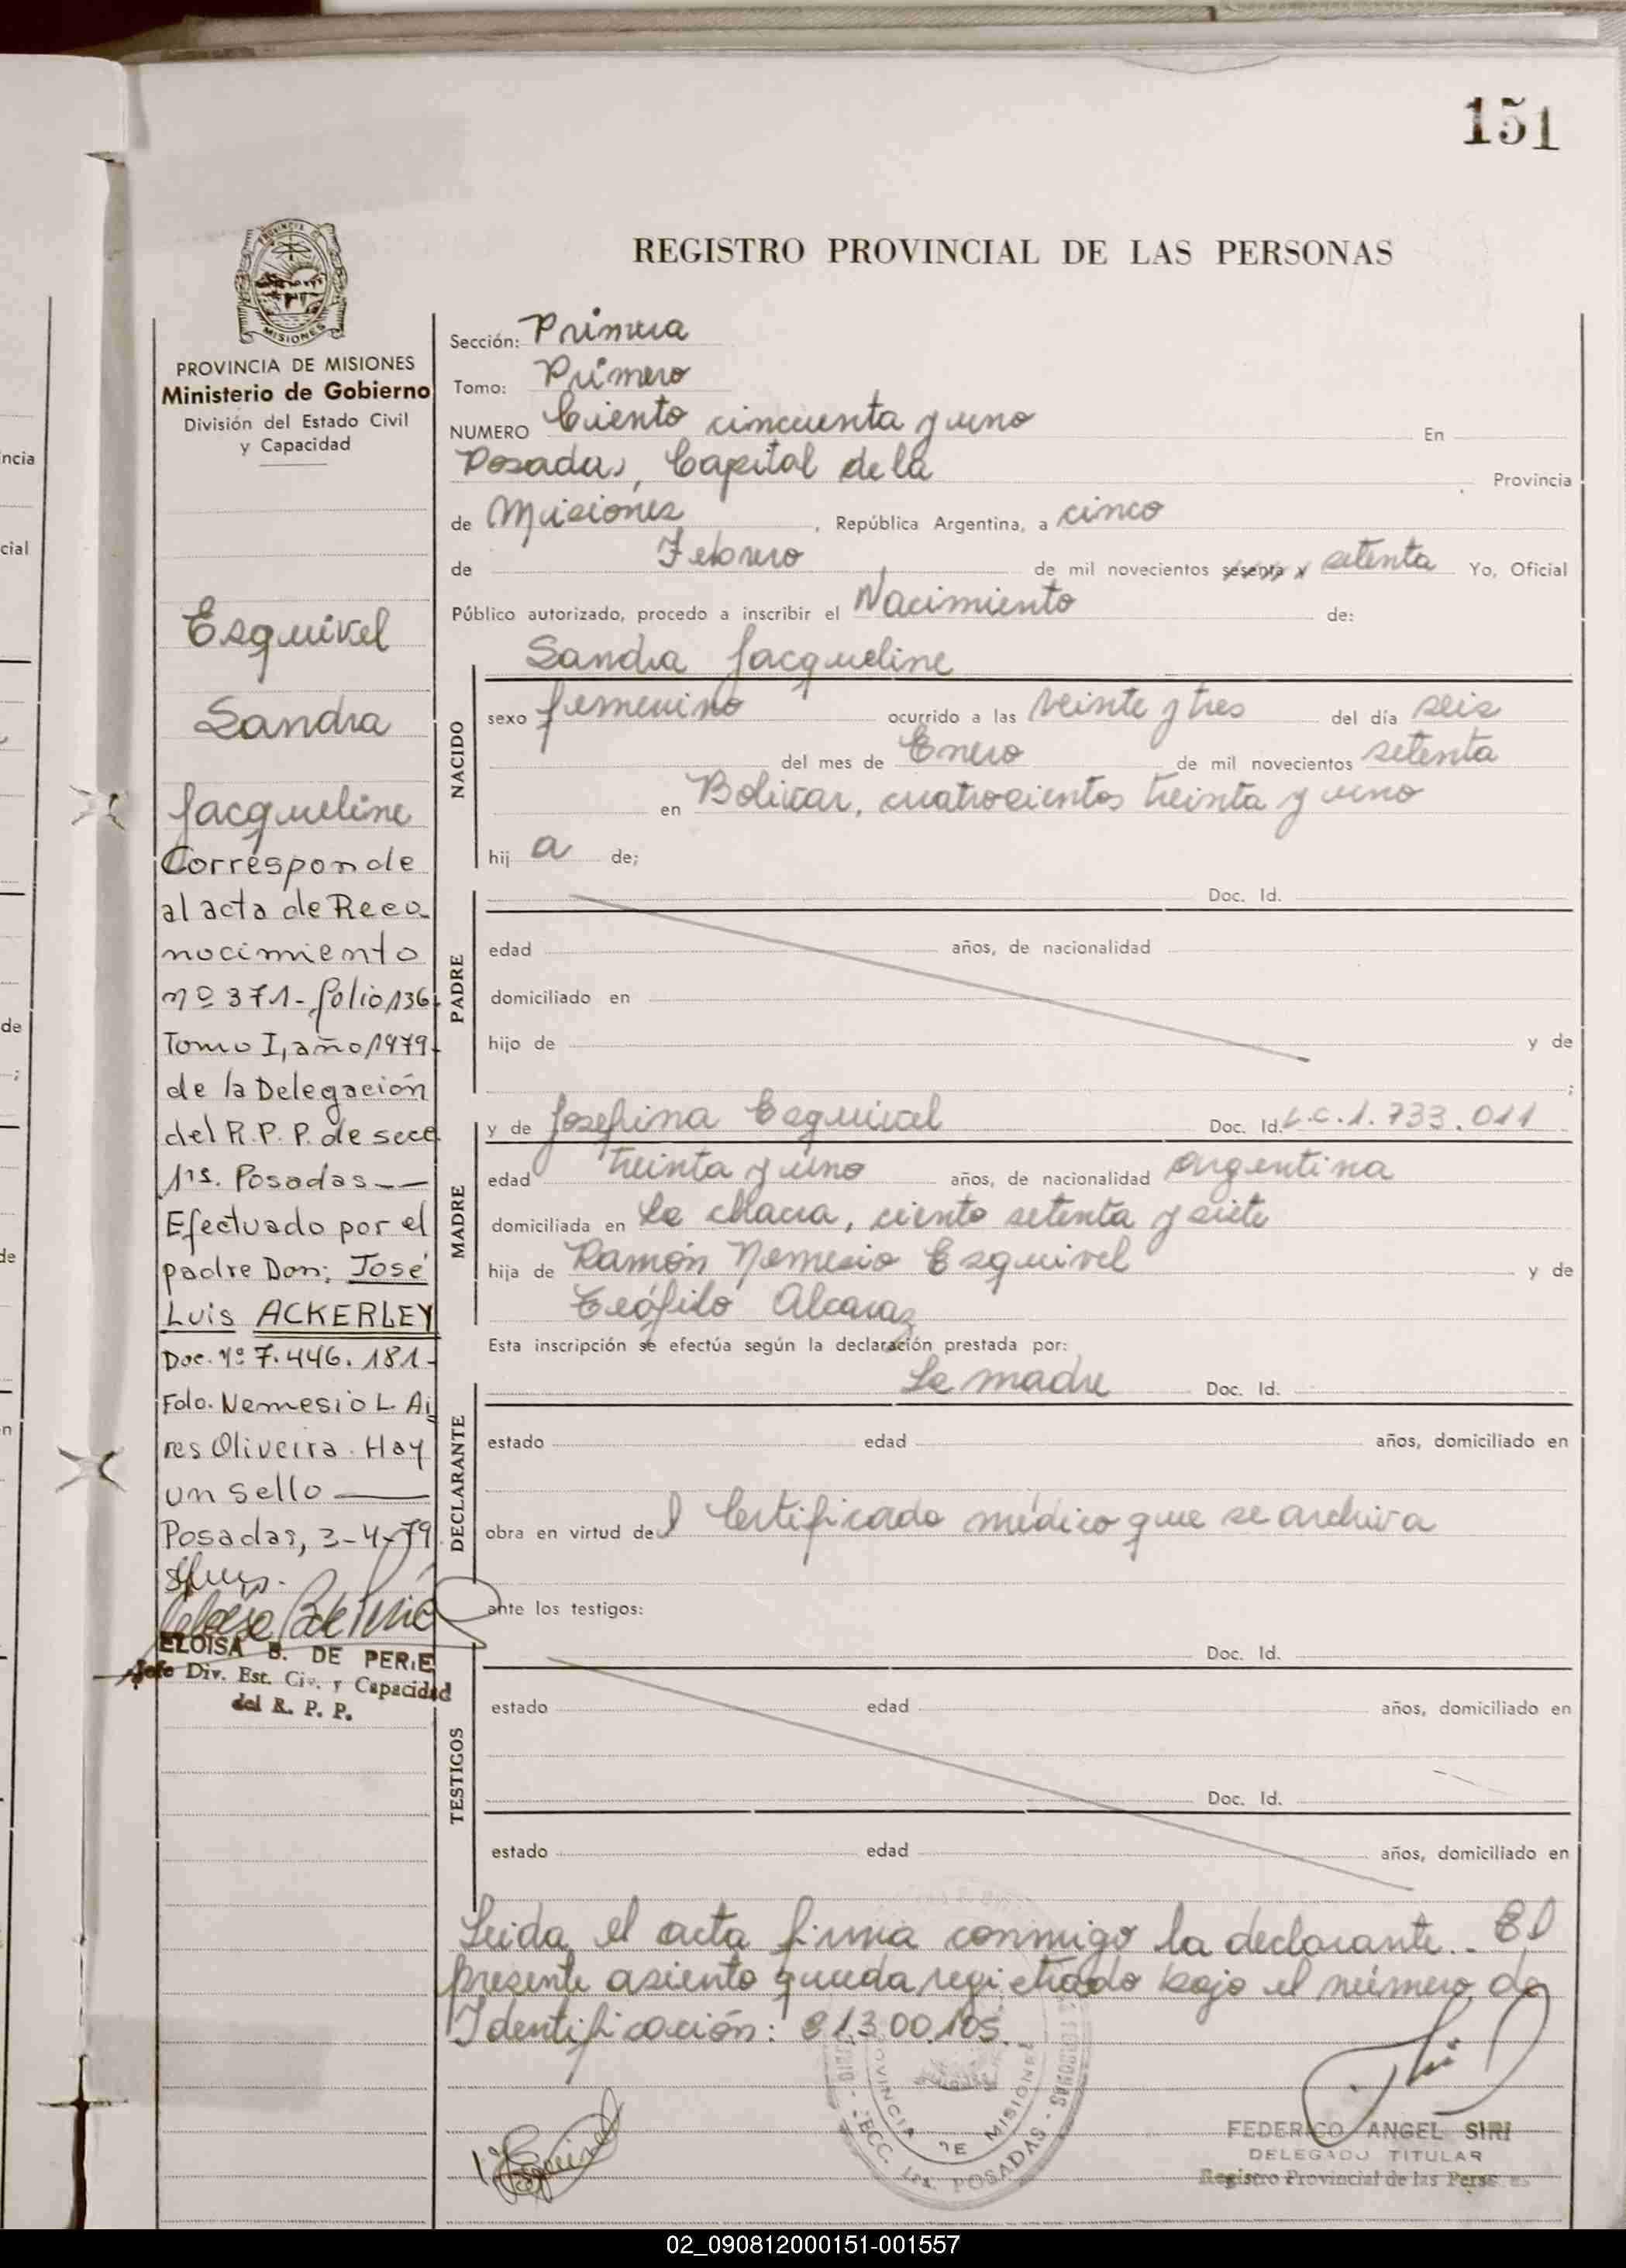 151
REGISTRO PROVINCIAL DE LAS PERSONAS
PROVINCIA DE MISIONES
Ministerio de Gobierno
División del Estado Civil
y Capacidad
Esquivel
Sandra
Jacqueline
Corresponde
al acta de Reco
nocimiento
nº 371- folio 136-
Tomo I, año 1979-
de la Delegación
del R.P.P. de secc
1ra. Posadas——
Efectuado por el
padre Don; José
Luis ACKERLEY
Doc. Nº 7.446.181-
Fdo. Nemesio L. Ai
res Oliveira. Hay
un sello ——
Posadas, 3-4-79
ELOISA B. DE PERIE
Jefe Div. Est. Civ. y Capacidad
del R. P. P.
Sección: Primera
Tomo: Primero
NUMERO Ciento cincuenta y uno En
Posadas, Capital de la Provincia
de Misiones, República Argentina, a cinco
de Febrero de mil novecientos sesenta y setenta Yo, Oficial
Público autorizado, procedo a inscribir el Nacimiento de:
Sandra Jacqueline
NACIDO
sexo femenino ocurrido a las veinte y tres del día seis
del mes de Enero de mil novecientos setenta
en Bolivar, cuatrocientos treinta y uno
hij a de;
PADRE
Doc. Id.
edad años, de nacionalidad
domiciliado en
hijo de y de
;
MADRE
y de Josefina Esquivel Doc. Id. L.C.1.733.011
edad treinta y uno años, de nacionalidad argentina
domiciliada en La chacra, ciento setenta y siete
hija de Ramón Nemesio Esquivel y de
Teófilo Alcaraz
Esta inscripción se efectúa según la declaración prestada por:
DECLARANTE
La madre Doc. Id.
estado edad años, domiciliado en
obra en virtud del Certificado médico que se archiva
ante los testigos:
TESTIGOS
Doc. Id.
estado edad años, domiciliado en
Doc. Id.
estado edad años, domiciliado en
Leida el acta firma conmigo la declarante.. El
presente asiento queda registrado bajo el número de
Identificación: 213.00.105.
PROVINCIA DE MISIONES
SECC. 1ra. POSADAS
FEDERICO ANGEL SIRI
DELEGADO TITULAR
Registro Provincial de las Personas
02_090812000151-001557